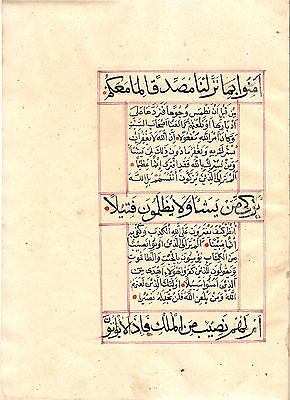 آمنوا بما نزلنا مصدقا لما معكم
من قبل ان نطمس وجوها فنردها على
ادبارها او نلعنهم كما لعنا اصحاب السبت
وكان امر الله مفعولا ان الله لا يغفر ان
يشرك به ويغفر ما دون ذلك لمن يشاء
ومن يشرك بالله فقد افترى اثما عظيما
الم تر الى الذين يزكون انفسهم بل الله
يزكي من يشاء ولا يظلمون فتيلا
انظر كيف يفترون على الله الكذب وكفى به
اثما مبينا الم تر الى الذين اوتوا نصيبا
من الكتاب يؤمنون بالجبت والطاغوت
ويقولون للذين كفروا هؤلاء اهدى من
الذين آمنوا سبيلا اولئك الذين لعنهم
الله ومن يلعن الله فلن تجد له نصيرا
ام لهم نصيب من الملك فاذا لا يؤتون